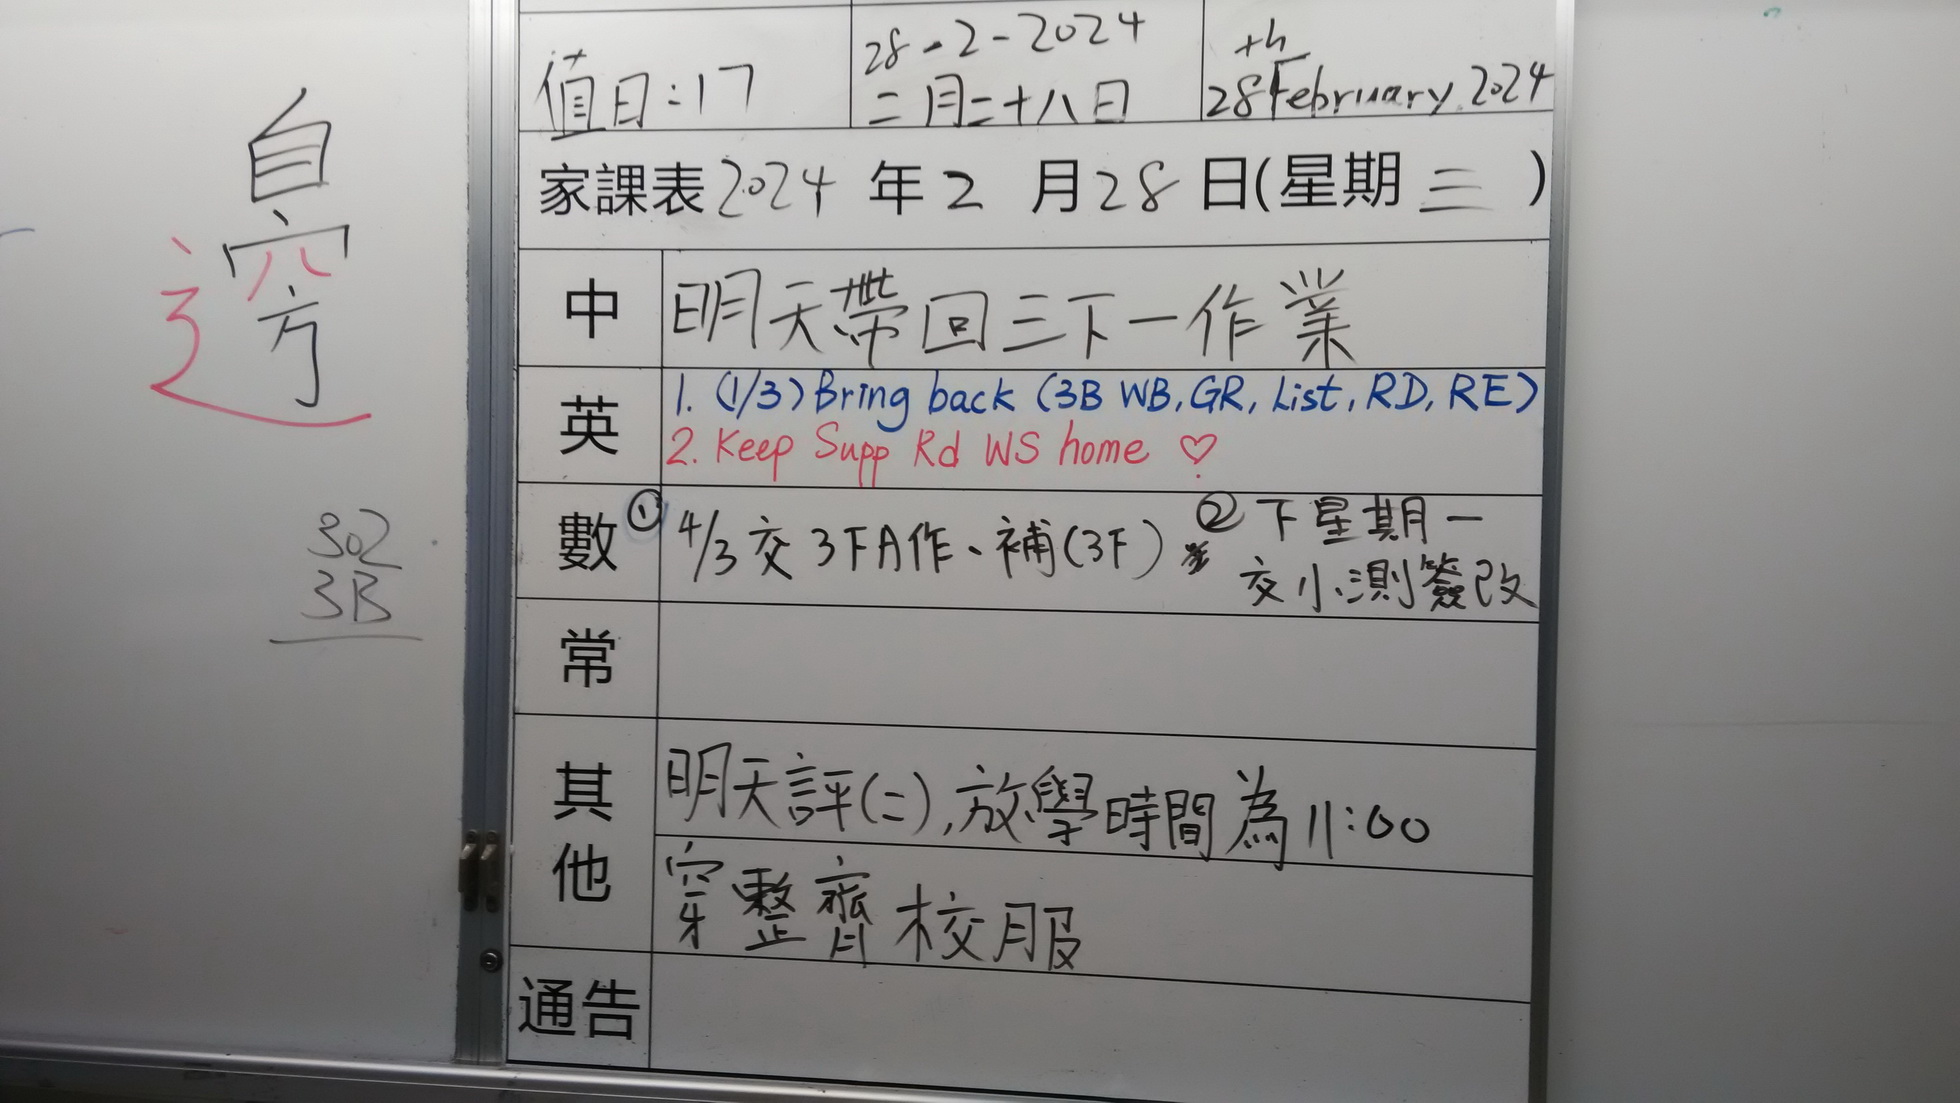 值日:17
28-2-2024
二月二十八日
28th February 2024
家課表2024年2月28日(星期三)
中 明天帶回三下一作業
英 1. (1/3) Bring back (3B WB, GR, List, RD, RE)
2. Keep Supp Rd WS home ♡
數 ① 4/3交3下A作、補(3下) ② 下星期一
交小測簽改
常
其他 明天評(二),放學時間為11:00
穿整齊校服
通告
邊
302
3B